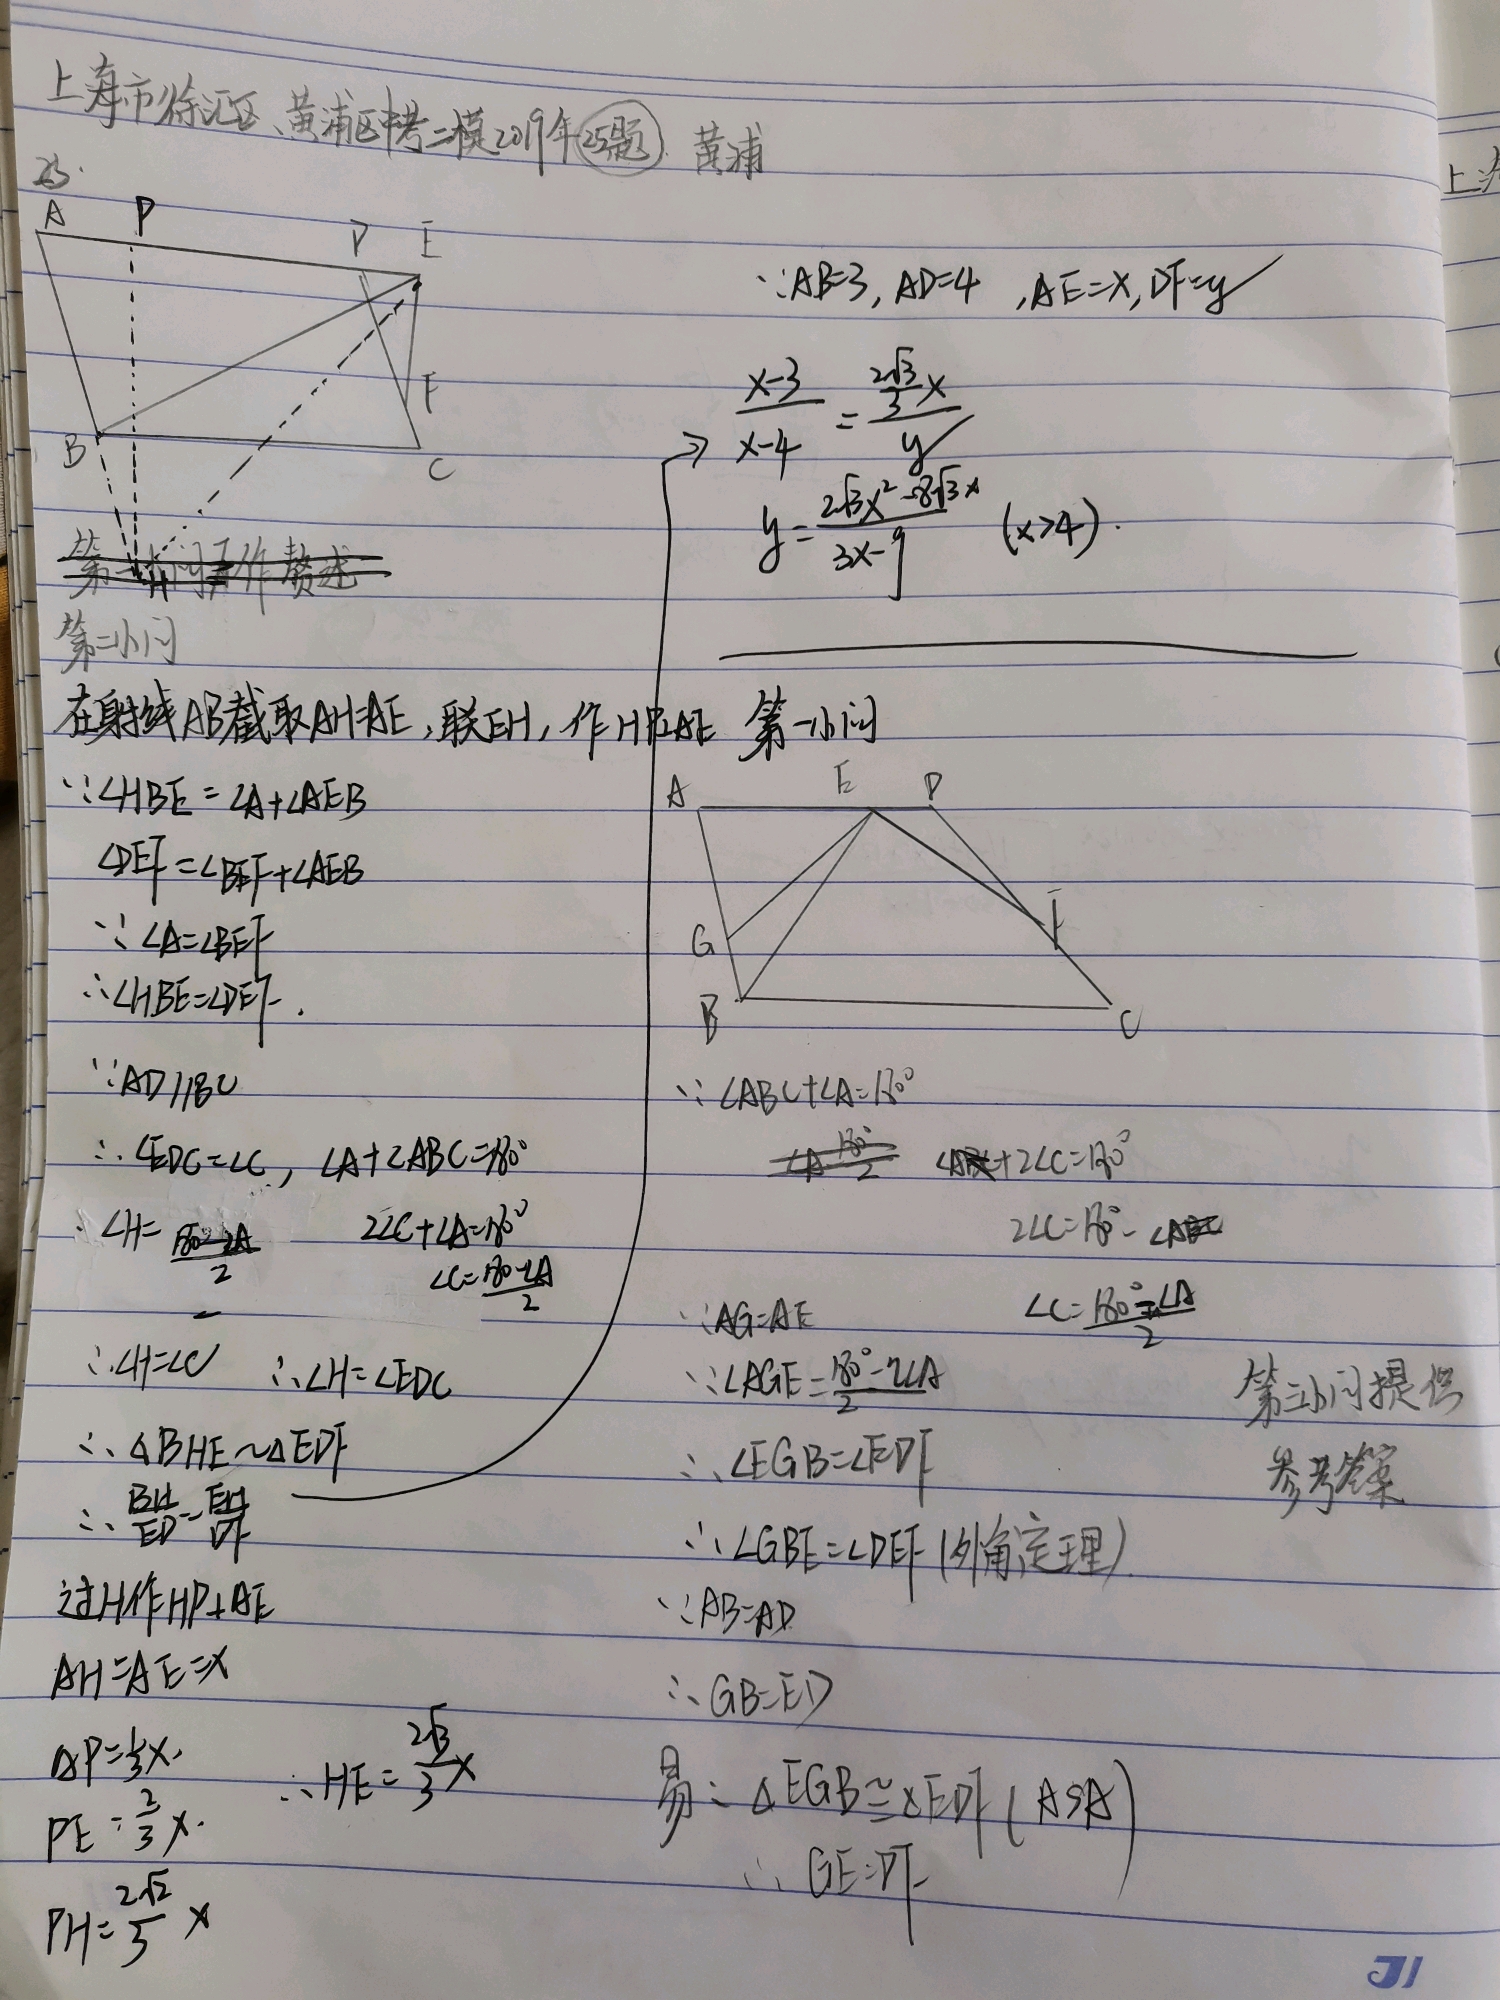 上海市徐汇区、黄浦区中考二模2019年25题 黄浦
25.
A P D E
F
B C
H
第二小问
在射线AB截取AH=AE,联EH,作HP⊥AE
∵∠HBE=∠A+∠AEB
∠DEF=∠BEF+∠AEB
∵∠A=∠BEF
∴∠HBE=∠DEF.
∵AD//BC
∴∠EDC=∠C, ∠A+∠ABC=180°
∠H=(180°-∠A)/2 2∠C+∠A=180°
∠C=(180-∠A)/2
∴∠H=∠C ∴∠H=∠EDC
∴△BHE∽△EDF
∴BH/ED=EH/DF
过H作HP⊥AE
AH=AE=x
AP=1/3x.
PE=2/3x. ∴HE=2√3/3x
PH=2√2/3x
∵AB=3,AD=4,AE=x,DF=y
(x-3)/(x-4)=(2√3/3x)/y
y=(2√3x²-8√3x)/(3x-9) (x>4).
第一小问
A E D
G F
B C
∵∠ABC+∠A=180°
∠A+2∠C=180°
2∠C=180°-∠A
∠C=(180°-∠A)/2
∵AG=AE
∵∠AGE=(180°-∠A)/2
∴∠EGB=∠EDF
∴∠GBE=∠DEF(外角定理)
∵AB=AD
∴GB=ED
易:△EGB≌△EDF(ASA)
∴GE=DF
第三小问提供
参考答案